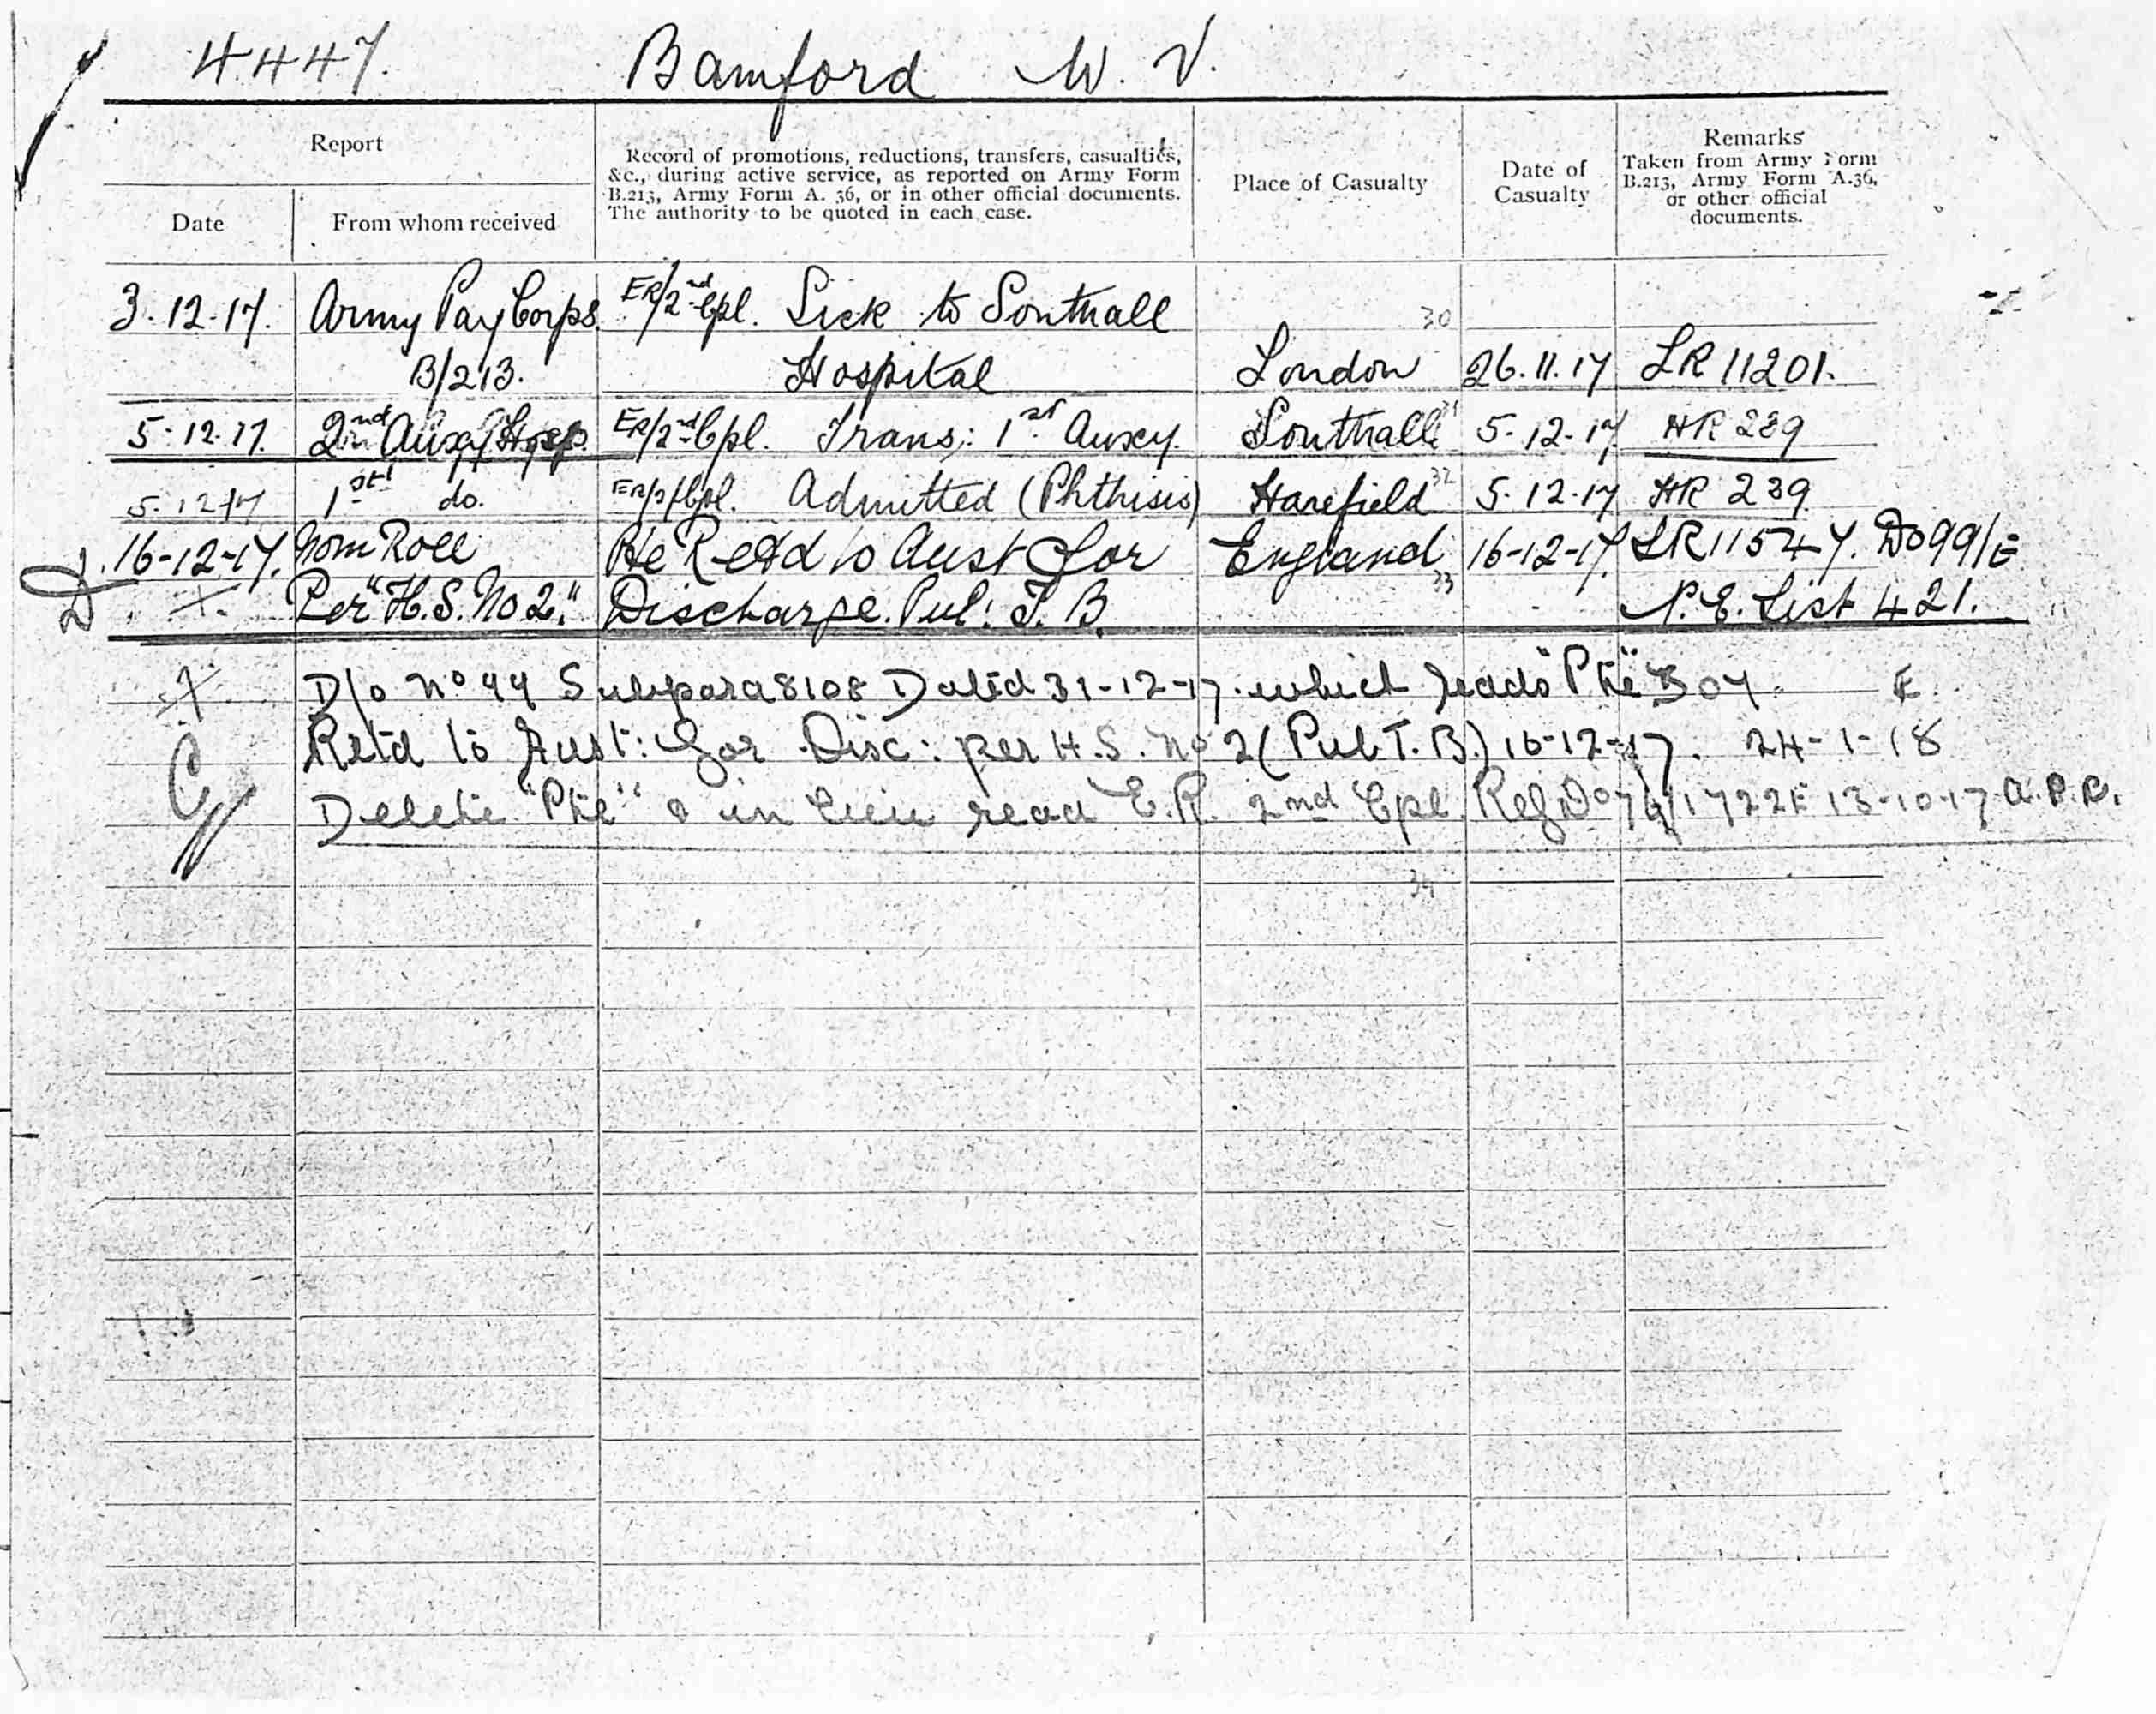 4447. Bamford W. V.
Report
Date
From whom received
Record of promotions, reductions, transfers, casualties,
&c., during active service, as reported on Army Form
B.213, Army Form A. 36, or in other official documents.
The authority to be quoted in each case.
Place of Casualty
Date of
Casualty
Remarks
Taken from Army Form
B.213, Army Form A.36,
or other official
documents.
3.12.17. Army Pay Corps ER/2nd Cpl. Sick to Southall 30
B/213. Hospital London 26.11.17 LR 11201.
5.12.17. 2nd Auxy Hosp. ER/2nd Cpl. Trans: 1st Auxy. Southall 31 5.12.17 HR 239
5.12.17 1st do. ER/2/Cpl. Admitted (Phthisis) Harefield 32 5.12.17 HR 239
16-12-17. Nom Roll Pte Retd to Aust for England 33 16-12-17. LR11547. Do99/E
D X. Per "H.S. No 2." Discharge. Pul: T. B. N.E. List 421.
X D/o No 99 Subpara 8108 Dated 31-12-17. which reads "Pte" E
Retd to Aust: for Disc: per H.S. No 2 (Pul T.B.) 16-12-17. 24-1-18
Delete "Pte" & in lieu read E.R. 2nd Cpl. 13-10-17
34